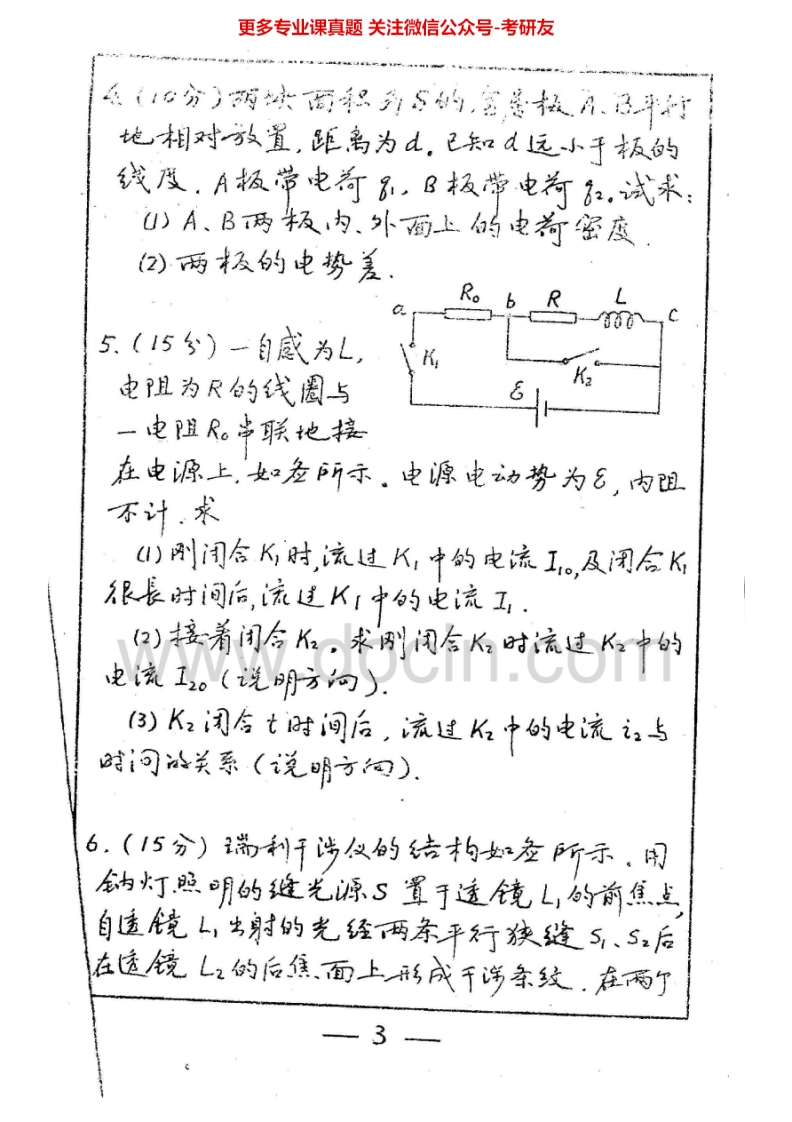 更多专业课真题 关注微信公众号-考研友
4.(10分)两块面积为S的导体板A、B平行
地相对放置,距离为d。已知d远小于板的
线度.A板带电荷q₁,B板带电荷q₂。试求:
(1) A、B两板内、外面上的电荷密度.
(2) 两板的电势差.
a R₀ b R L C
K₁ K₂ ε
5.(15分)一自感为L,
电阻为R的线圈与
一电阻R₀串联地接
在电源上,如图所示。电源电动势为ε,内阻
不计.求
(1) 刚闭合K₁时,流过K₁中的电流I₁₀,及闭合K₁
很長时间后,流过K₁中的电流I₁.
(2) 接着闭合K₂。求刚闭合K₂时流过K₂中的
电流I₂₀(说明方向).
(3) K₂闭合t时间后,流过K₂中的电流i₂与
时间的关系(说明方向).
www.docin.com
6.(15分)瑞利干涉仪的结构如图所示.用
钠灯照明的缝光源S置于透镜L₁的前焦点,
自透镜L₁出射的光经两条平行狭缝S₁、S₂后
在透镜L₂的后焦面上形成干涉条纹.在两个
— 3 —